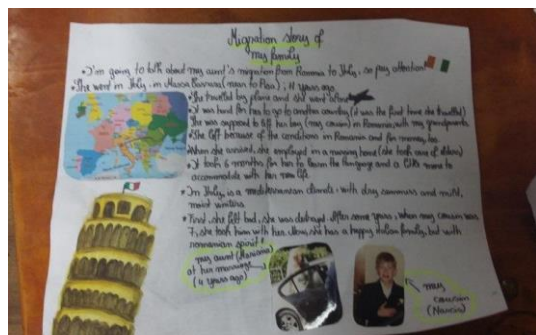 Migration story of
my family
• I'm going to talk about my aunt's migration from Romania to Italy, so pay attention!
• She went in Italy, in Massa Carrara (near to Pisa), 11 years ago
• She travelled by plane and she went alone
• It was hard for her to go to another country (it was the first time she travelled)
She was supposed to left her boy (my cousin) in Romania, with my grandparents.
• She left because of the conditions in Romania and for money, too
When she arrived, she employed in a nursing home (she took care of elders)
• It took 6 months for her to learn the language and a little more to
accomodate with her new life.
• In Italy, is a mediterranean climate, with dry summers and mild,
moist winters.
• First, she felt bad, she was destroyed. After some years, when my cousin was
7, she took him with her. Now, she has a happy italian family, but with
romanian spirit!
my aunt (Mariana)
at her marriage
(4 years ago)
my
cousin